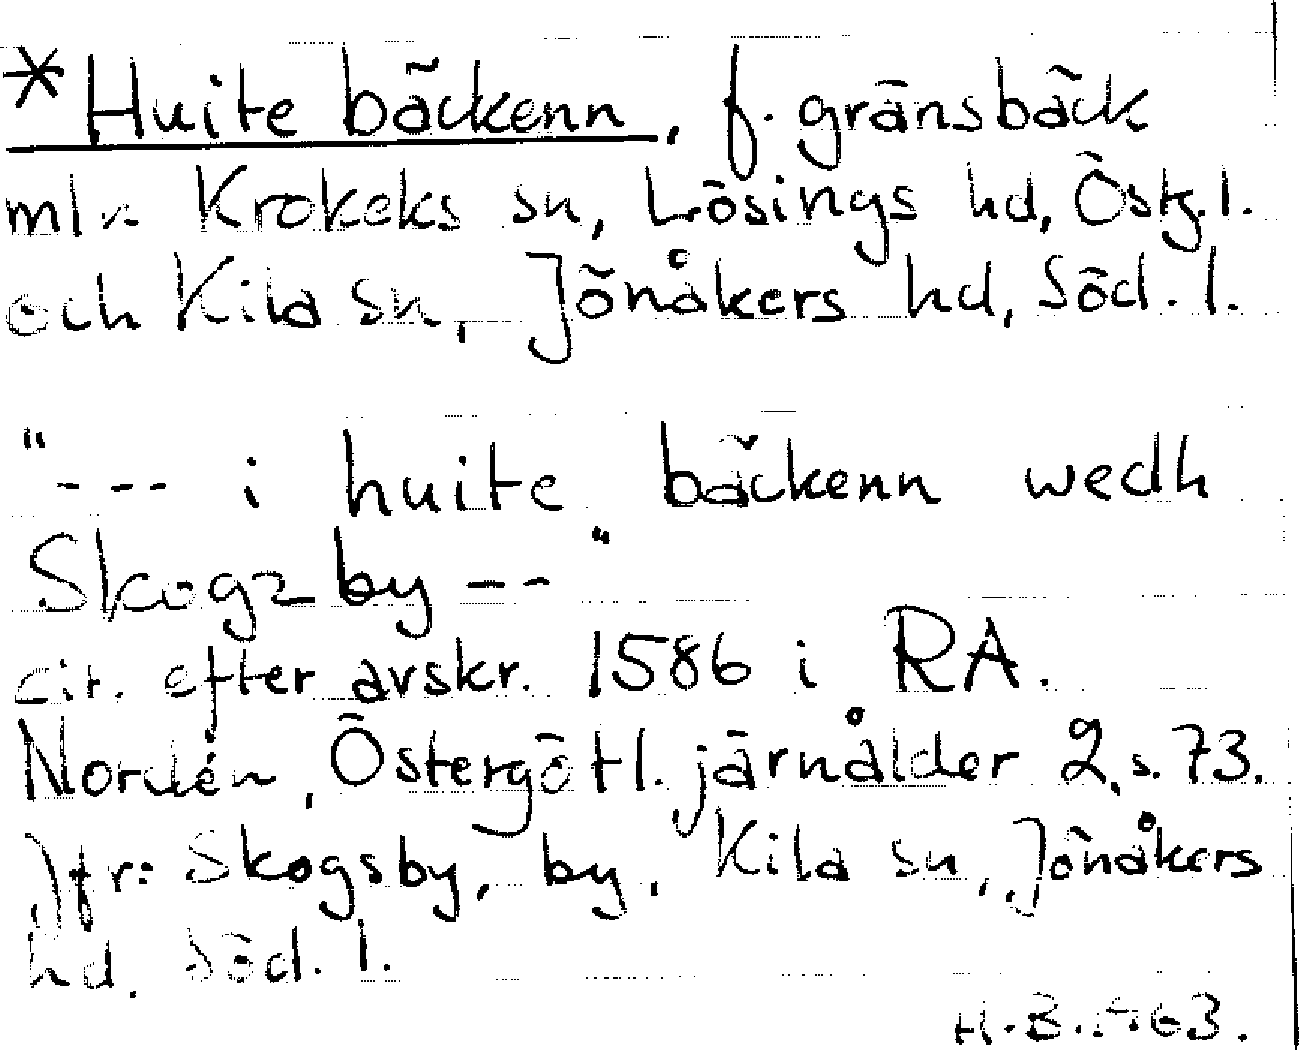 *Huite bäckenn, f. gränsbäck
mln Krokeks sn, Lösings hd, Östg. l.
och Kila sn, Jönåkers hd, Söd. l.
"--- i huite bäckenn wedh
Skogzby --"
cit. efter avskr. 1586 i RA.
Nordén, Östergötl. järnålder 2, s. 73.
Jfr: Skogsby, by, Kila sn, Jönåkers
hd. Söd. l.
H.B.